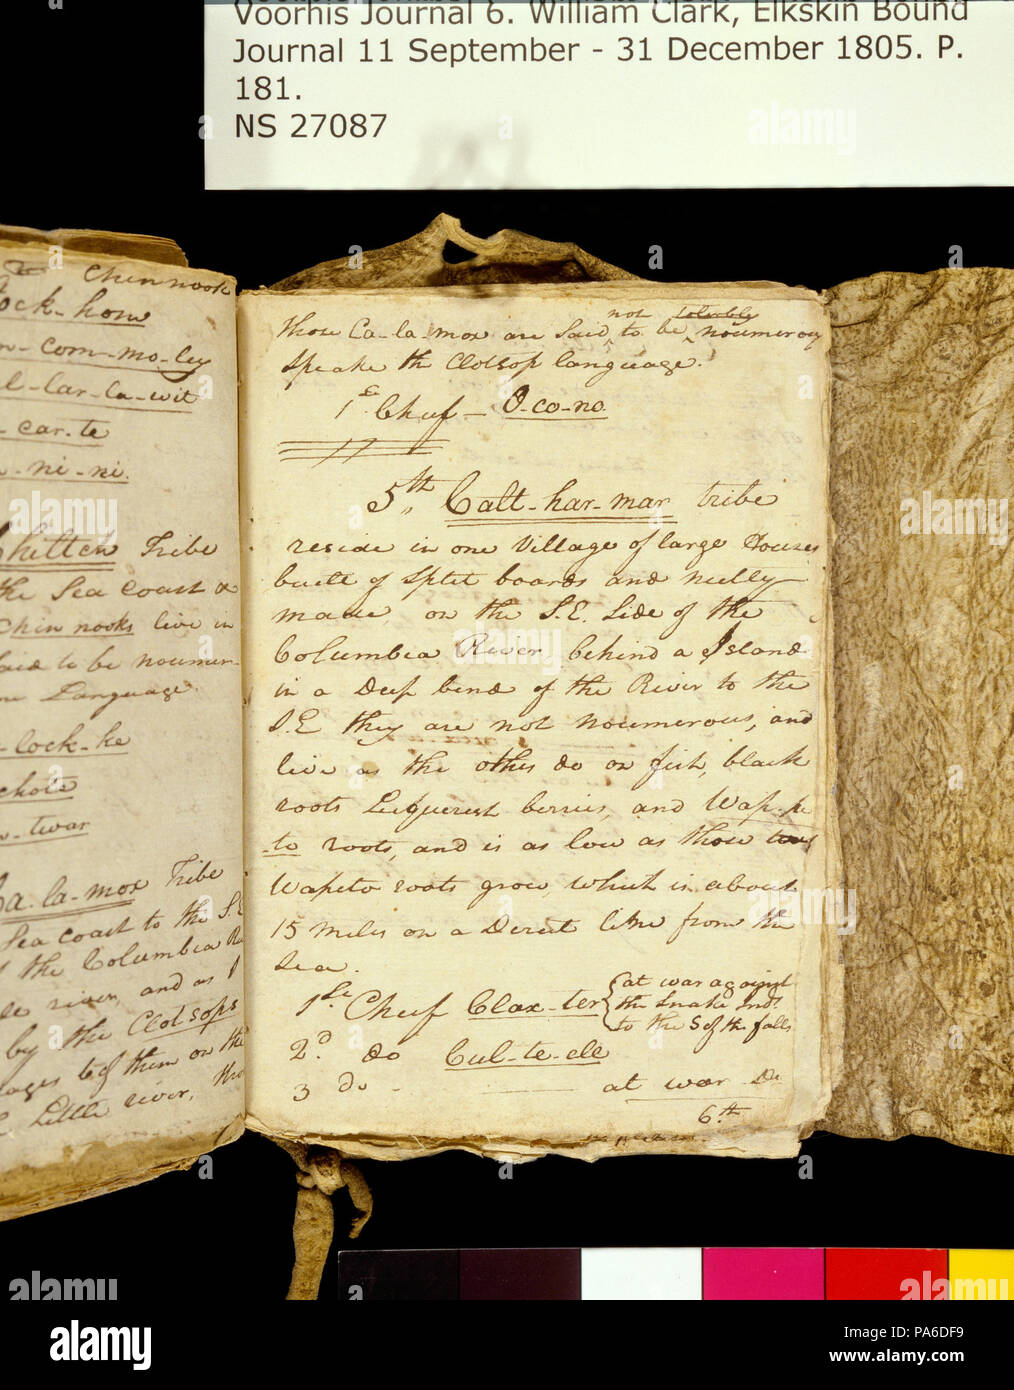 Voorhis Journal 6. William Clark, Elkskin Bound
Journal 11 September - 31 December 1805. P.
181.
NS 27087
Chinnook
ock-how
com-mo-ley
l-lar-la-wit
car-te
ni-ni.
hilten Tribe
the Sea Coast &
Chin nooks live in
said to be noumer-
Language
lock-ke
chote
twar
a-la-mox Tribe
Sea Coast to the S.E
the Columbia R
river, and as
by the Clotsops
ages & of them on the
Little river,
not tolerably
those Ca-la-mox are said to be noumerous
speake the Clotsop language.
1st Cheif - O-co-no
5th Calt-har-mar tribe
reside in one Village of large Houses
built of Split boards and neetly
made on the S.E. Side of the
Columbia River behind a Island
in a Deep bend of the River to the
S.E they are not noumerous, and
live as the others do on fish, black
roots Lequerest berries, and Wap-pe
to roots, and is as low as those
Wapeto roots grow, which is about
15 miles on a Derect line from the
Sea.
1st Cheif Clax-ter at war against
the Snake Inds
to the S of the falls
2d do Cul-te-ell
3 do - at war -
6th
alamy
alamy
a
Image ID: PA6DF9
www.alamy.com